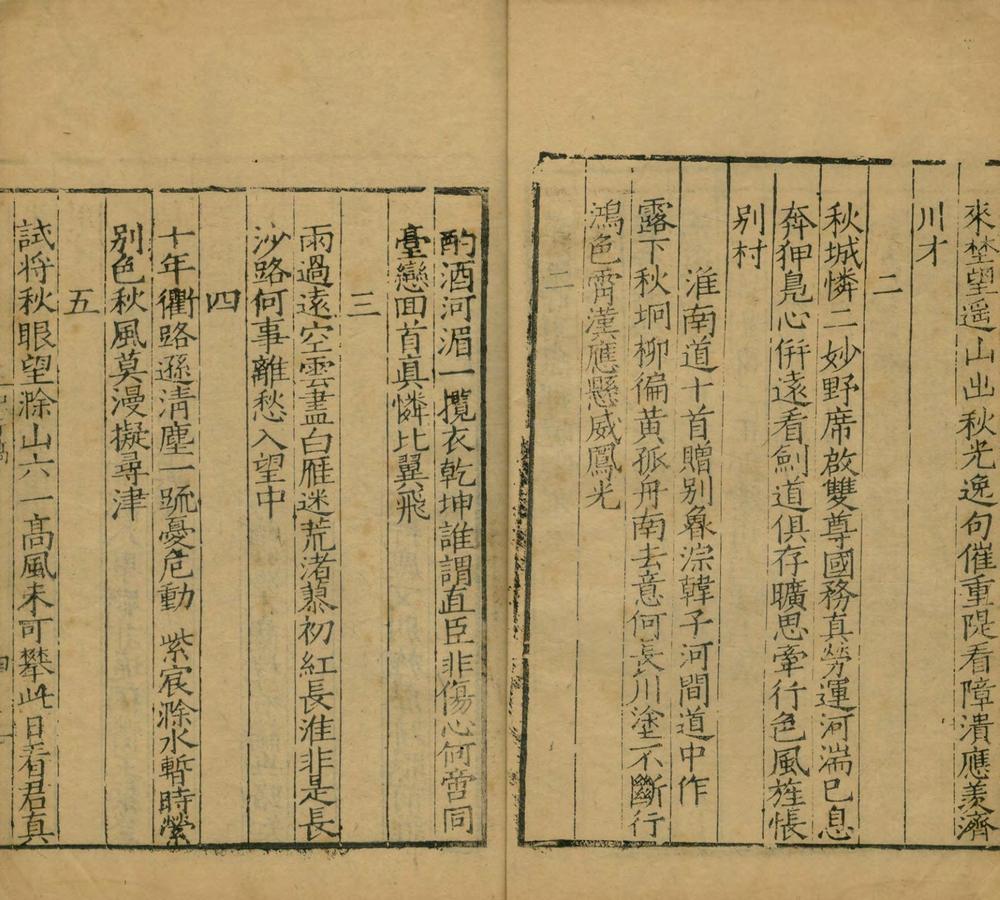 來埜望遥山出秋光逸句催重隄看障潰應羨濟
川才
二
秋城憐二妙野席啟雙尊國務真勞運河湍已息
奔狎鳧心倂遠看劍道俱存曠思牽行色風旌悵
别村
淮南道十首贈别魯淙韓子河間道中作
露下秋坰柳徧黄孤舟南去意何長川塗不斷行
鴻色霄漢應懸威鳳光
二
酌酒河湄一攬衣乾坤誰謂直臣非傷心何啻同
臺戀囬首真憐比翼飛
三
雨過遠空雲盡白雁迷荒渚蓼初紅長淮非是長
沙路何事離愁入望中
四
十年衢路遜淸塵一䟽憂危動 紫宸滁水暫時縈
别色秋風莫漫擬尋津
五
試将秋眼望滁山六一髙風未可攀此日看君真